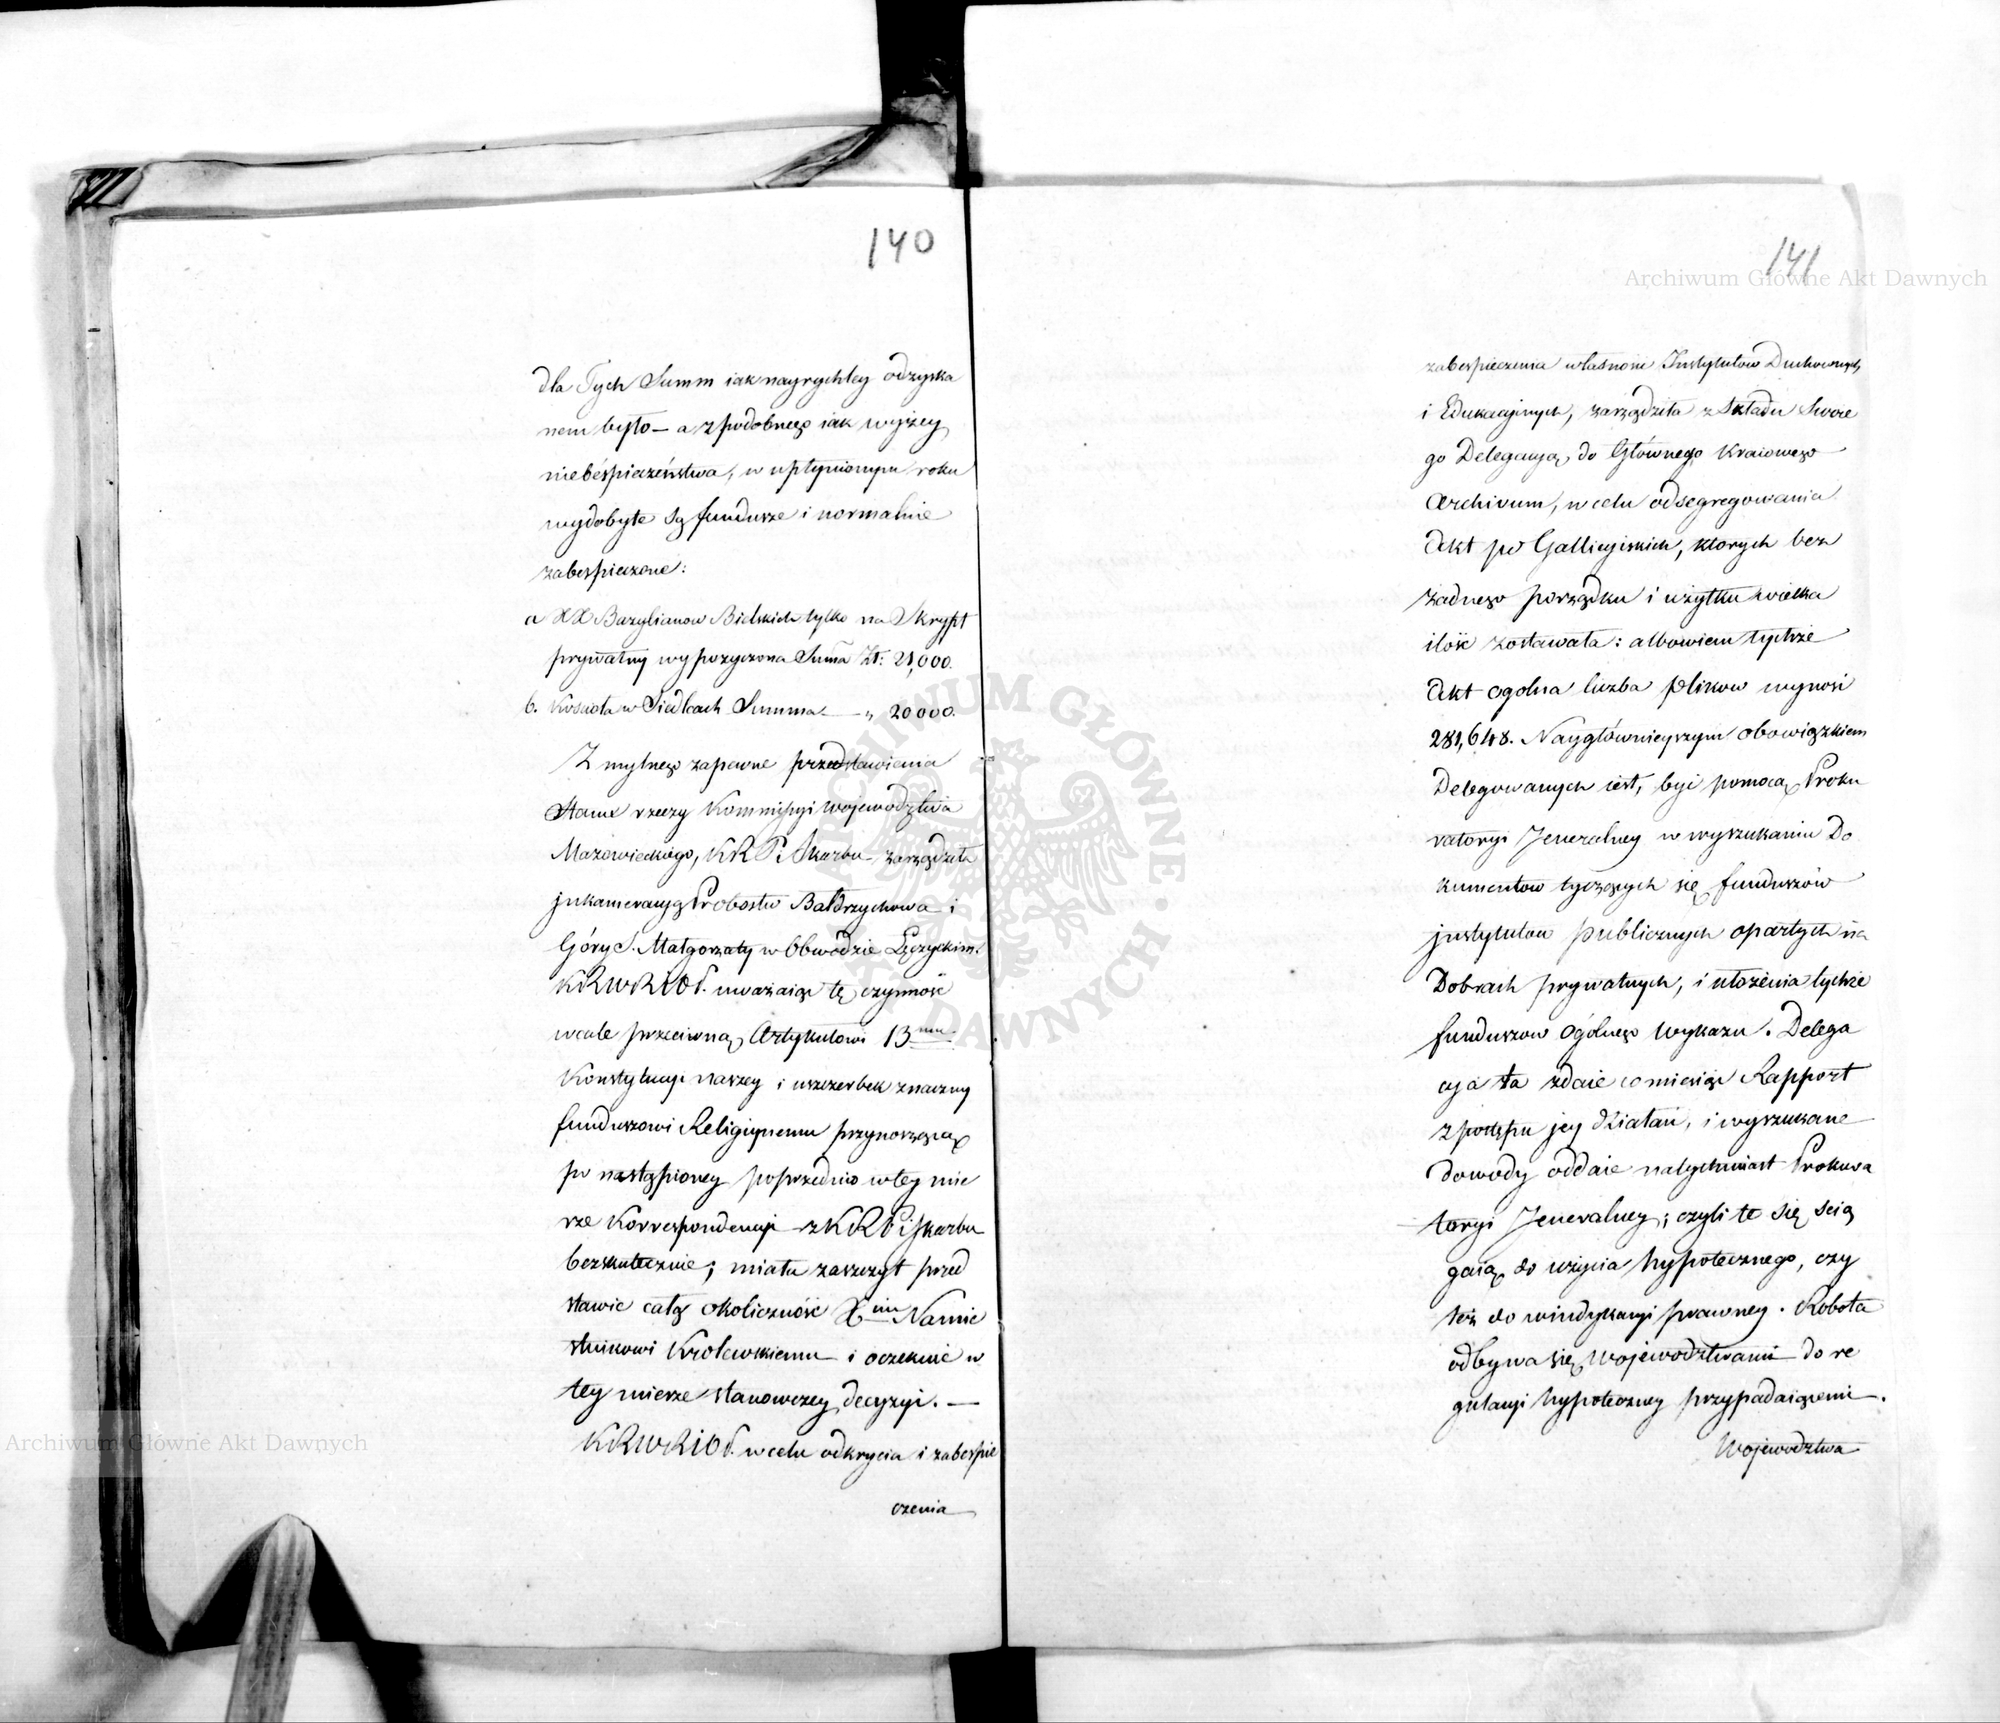 140
dla Tych Summ iak nayrychley odzyska
nem było — a z podobnego iak wyżey
niebéspieczeństwa, w upłynionym roku
wydobyte są fundusze i normalnie
zabespieczone:
a XX Bazylianow Bielskich tylko na Skrypt
prywatny wypozyczona Suma Zł: 21,000.
b. Kościoła w Siedlcach Summa — „ 20000.
Z mylnego zapewne przedstawienia
Stanu rzeczy Kommissyi Województwa
Mazowieckiego, KRP i Skarbu zarządziła
jnkameracyą Probostw Bałdrzychowa i
Góry S. Małgorzaty w Obwodzie Łęczyckim.
KRWRiOP. uważaiąc tę czynność
wcale przeciwną Artykułowi 13mu
Konstytucyi naszey i uszczerbek znaczny
funduszowi Religiynemu przynoszącą
po nastąpioney poprzednio w tey mie
rze Korrespondencyi z KRP i Skarbu
bezskutecznie; miała zaszczyt przed
stawić całą okoliczność Xciu Namie
stnikowi Królewskiemu i oczekuie w
tey mierze stanowczey decyzyi. —
KRWRiOP. w celu odkrycia i zabespie
czenia
141
zabespieczenia własności Instytutów Duchownych
i Edukacyinych, zarządziła z Składu Swoie
go Delegacyą do Głównego Kraiowego
Archivum, w celu odsegregowania
Akt po Gallicyiskich, ktorych bez
żadnego porządku i użytku wielka
ilość zostawała: albowiem tychże
Akt ogolna liczba plikow wynosi
281,648. Naygłównieyszym obowiązkiem
Delegowanych iest, być pomocą Proku
ratoryi Jeneralney w wyszukaniu Do
kumentow tyczących się funduszów
jnstytutow publicznych opartych na
Dobrach prywatnych, i ułożenia tychże
funduszow ogólnego wykazu. Delega
cya ta zdaie co miesiąc Rapport
z postępu jey działań, i wyszukane
dowody oddaie natychmiast Prokura
toryi Jeneralney; czyli te się ścią
gaią do użycia hypotecznego, czy
też do windykacyi prawney. Robota
odbywa się Województwami do re
gulacyi hypoteczney przypadaiącemi.
Województwa
Archiwum Główne Akt Dawnych
Archiwum Główne Akt Dawnych
ARCHIWUM GŁÓWNE AKT DAWNYCH